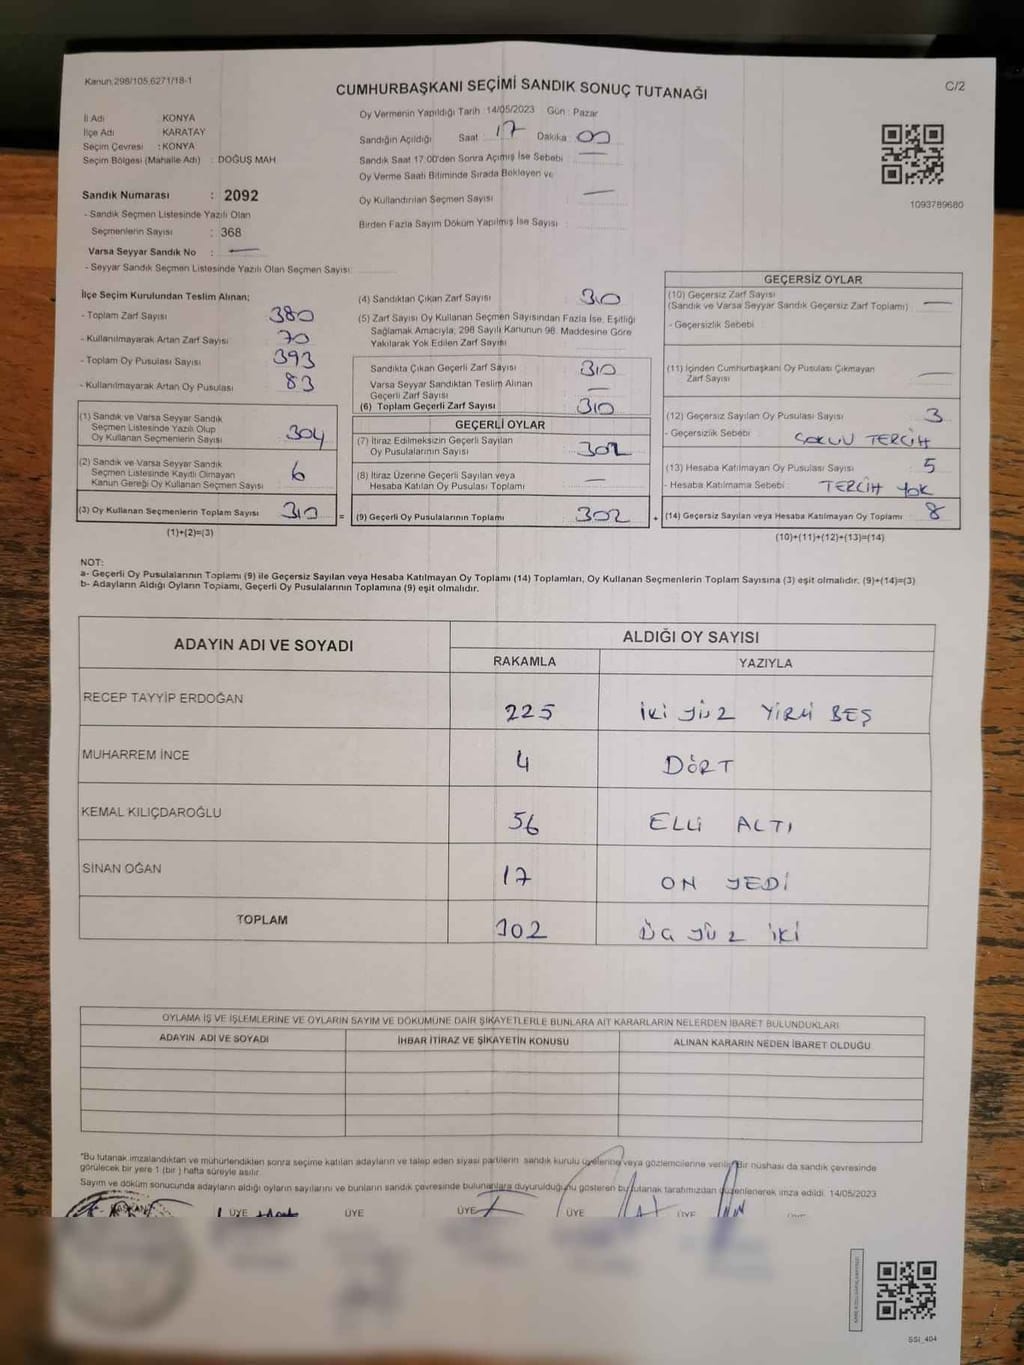 Kanun:298/105,6271/18-1
CUMHURBAŞKANI SEÇİMİ SANDIK SONUÇ TUTANAĞI
C/2
İl Adı KONYA
İlçe Adı KARATAY
Seçim Çevresi : KONYA
Seçim Bölgesi (Mahalle Adı) : DOĞUŞ MAH
Oy Vermenin Yapıldığı Tarih :14/05/2023 Gün : Pazar
Sandığın Açıldığı Saat 17 Dakika : 00
Sandık Saat 17.00'den Sonra Açılmış İse Sebebi
Oy Verme Saati Bitiminde Sırada Bekleyen ve
Oy Kullandırılan Seçmen Sayısı
Birden Fazla Sayım Döküm Yapılmış İse Sayısı :
1093789680
Sandık Numarası : 2092
- Sandık Seçmen Listesinde Yazılı Olan
Seçmenlerin Sayısı : 368
Varsa Seyyar Sandık No :
- Seyyar Sandık Seçmen Listesinde Yazılı Olan Seçmen Sayısı:
İlçe Seçim Kurulundan Teslim Alınan;
- Toplam Zarf Sayısı 380
- Kullanılmayarak Artan Zarf Sayısı 70
- Toplam Oy Pusulası Sayısı 393
- Kullanılmayarak Artan Oy Pusulası 83
(1) Sandık ve Varsa Seyyar Sandık
Seçmen Listesinde Yazılı Olup
Oy Kullanan Seçmenlerin Sayısı 304
(2) Sandık ve Varsa Seyyar Sandık
Seçmen Listesinde Kayıtlı Olmayan
Kanun Gereği Oy Kullanan Seçmen Sayısı 6
(3) Oy Kullanan Seçmenlerin Toplam Sayısı 310
(1)+(2)=(3)
(4) Sandıktan Çıkan Zarf Sayısı 310
(5) Zarf Sayısı Oy Kullanan Seçmen Sayısından Fazla İse, Eşitliği
Sağlamak Amacıyla; 298 Sayılı Kanunun 98. Maddesine Göre
Yakılarak Yok Edilen Zarf Sayısı
Sandıkta Çıkan Geçerli Zarf Sayısı 310
Varsa Seyyar Sandıktan Teslim Alınan
Geçerli Zarf Sayısı
(6) Toplam Geçerli Zarf Sayısı 310
GEÇERLİ OYLAR
(7) İtiraz Edilmeksizin Geçerli Sayılan
Oy Pusulalarının Sayısı 302
(8) İtiraz Üzerine Geçerli Sayılan veya
Hesaba Katılan Oy Pusulası Toplamı
= (9) Geçerli Oy Pusulalarının Toplamı 302 +
GEÇERSİZ OYLAR
(10) Geçersiz Zarf Sayısı
(Sandık ve Varsa Seyyar Sandık Geçersiz Zarf Toplamı)
- Geçersizlik Sebebi :
(11) İçinden Cumhurbaşkanı Oy Pusulası Çıkmayan
Zarf Sayısı
(12) Geçersiz Sayılan Oy Pusulası Sayısı 3
- Geçersizlik Sebebi : ÇOKLU TERCİH
(13) Hesaba Katılmayan Oy Pusulası Sayısı 5
- Hesaba Katılmama Sebebi : TERCİH YOK
(14) Geçersiz Sayılan veya Hesaba Katılmayan Oy Toplamı 8
(10)+(11)+(12)+(13)=(14)
NOT:
a- Geçerli Oy Pusulalarının Toplamı (9) ile Geçersiz Sayılan veya Hesaba Katılmayan Oy Toplamı (14) Toplamları, Oy Kullanan Seçmenlerin Toplam Sayısına (3) eşit olmalıdır. (9)+(14)=(3)
b- Adayların Aldığı Oyların Toplamı, Geçerli Oy Pusulalarının Toplamına (9) eşit olmalıdır.
ADAYIN ADI VE SOYADI ALDIĞI OY SAYISI
RAKAMLA YAZIYLA
RECEP TAYYİP ERDOĞAN 225 İKİ YÜZ YİRMİ BEŞ
MUHARREM İNCE 4 DÖRT
KEMAL KILIÇDAROĞLU 56 ELLİ ALTI
SİNAN OĞAN 17 ON YEDİ
TOPLAM 302 ÜÇ YÜZ İKİ
OYLAMA İŞ VE İŞLEMLERİNE VE OYLARIN SAYIM VE DÖKÜMÜNE DAİR ŞİKAYETLERLE BUNLARA AİT KARARLARIN NELERDEN İBARET BULUNDUKLARI
ADAYIN ADI VE SOYADI İHBAR İTİRAZ VE ŞİKAYETİN KONUSU ALINAN KARARIN NEDEN İBARET OLDUĞU
*Bu tutanak imzalandıktan ve mühürlendikten sonra seçime katılan adayların ve talep eden siyasi partilerin sandık kurulu üyelerine veya gözlemcilerine verilir. Bir nüshası da sandık çevresinde
görülecek bir yere 1 (bir ) hafta süreyle asılır.
Sayım ve döküm sonucunda adayların aldığı oyların sayılarını ve bunların sandık çevresinde bulunanlara duyurulduğunu gösteren bu tutanak tarafımızdan düzenlenerek imza edildi. 14/05/2023
BAŞKAN ÜYE ÜYE ÜYE ÜYE ÜYE
SSI_404